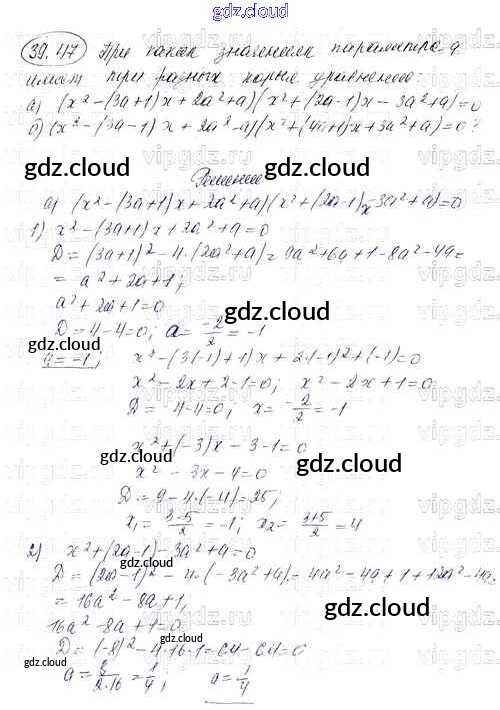 gdz.cloud
39.47 При каких значениях параметра a
имеет три разных корня уравнение:
а) (x²-(3a+1)x+2a²+a)(x²+(2a-1)x-3a²+a)=0
б) (x²-(3a-1)x+2a²-a)(x²+(4a+1)x+3a²+a)=0?
gdz.cloud gdz.cloud
Решение
а) (x²-(3a+1)x+2a²+a)(x²+(2a-1)x-3a²+a)=0
1) x²-(3a+1)x+2a²+a=0
D=(3a+1)²-4·(2a²+a)=9a²+6a+1-8a²-4a=
= a²+2a+1;
a²+2a+1=0
gdz.cloud
D=4-4=0; a=-2/2=-1
gdz.cloud
a=-1; x²-(3(-1)+1)x+2(-1)²+(-1)=0
x²-2x+2-1=0; x²-2x+1=0
D=4-4=0; x=-2/2=-1
x²+(-3)x-3-1=0
gdz.cloud
x²-3x-4=0
D=9-4·(-4)=25;
x₁=(3-5)/2=-1; x₂=(3+5)/2=4
2) x²+(2a-1)-3a²+a=0
D=(2a-1)²-4·(-3a²+a)=4a²-4a+1+12a²-4a=
=16a²-8a+1;
gdz.cloud
16a²-8a+1=0
D=(-8)²-4·16·1=64-64=0
a=8/2·16=1/4; a=1/4